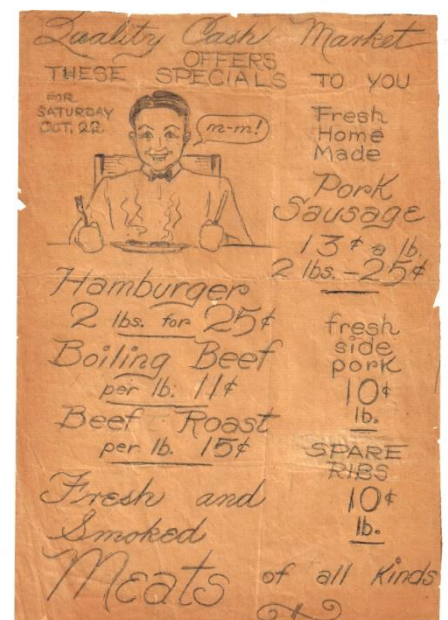 Quality Cash Market
OFFERS
THESE SPECIALS TO YOU
FOR
SATURDAY
OCT. 22
m-m!
Fresh
Home
Made
Pork
Sausage
13¢ a lb.
2 lbs. – 25¢
Hamburger
2 lbs. for 25¢
Boiling Beef
per lb. 11¢
Beef Roast
per lb. 15¢
fresh
side
pork
10¢
lb.
SPARE
RIBS
10¢
lb.
Fresh and
Smoked
Meats of all Kinds